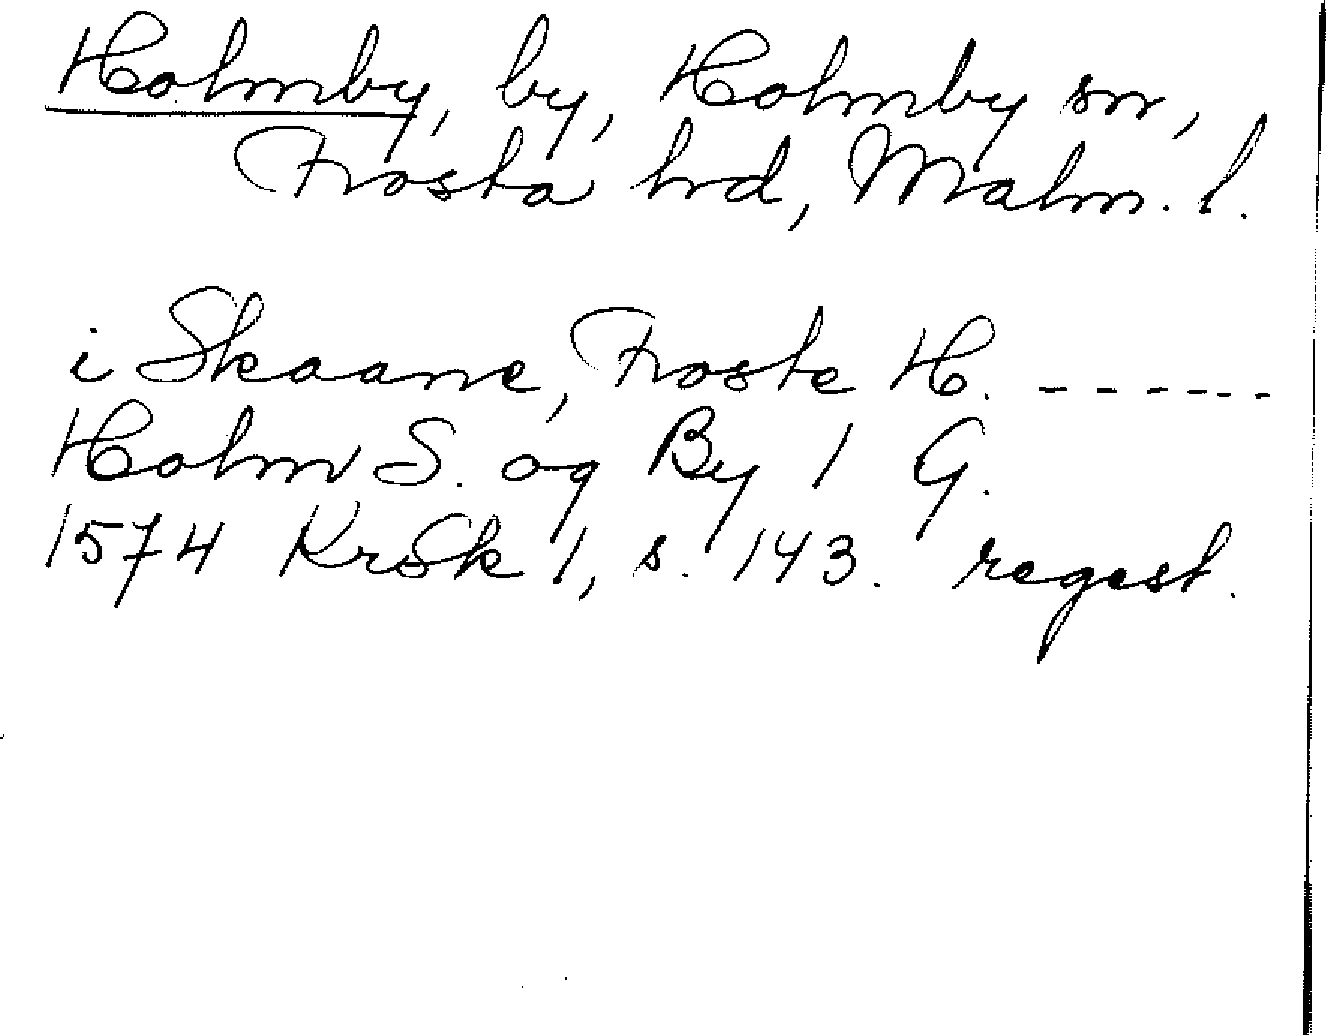 Holmby, by, Holmby sn,
Frosta hrd, Malm. l.
i Skaane, Froste H. ------
Holm S. og By 1 G.
1574 KrSk 1, s. 143. regest.